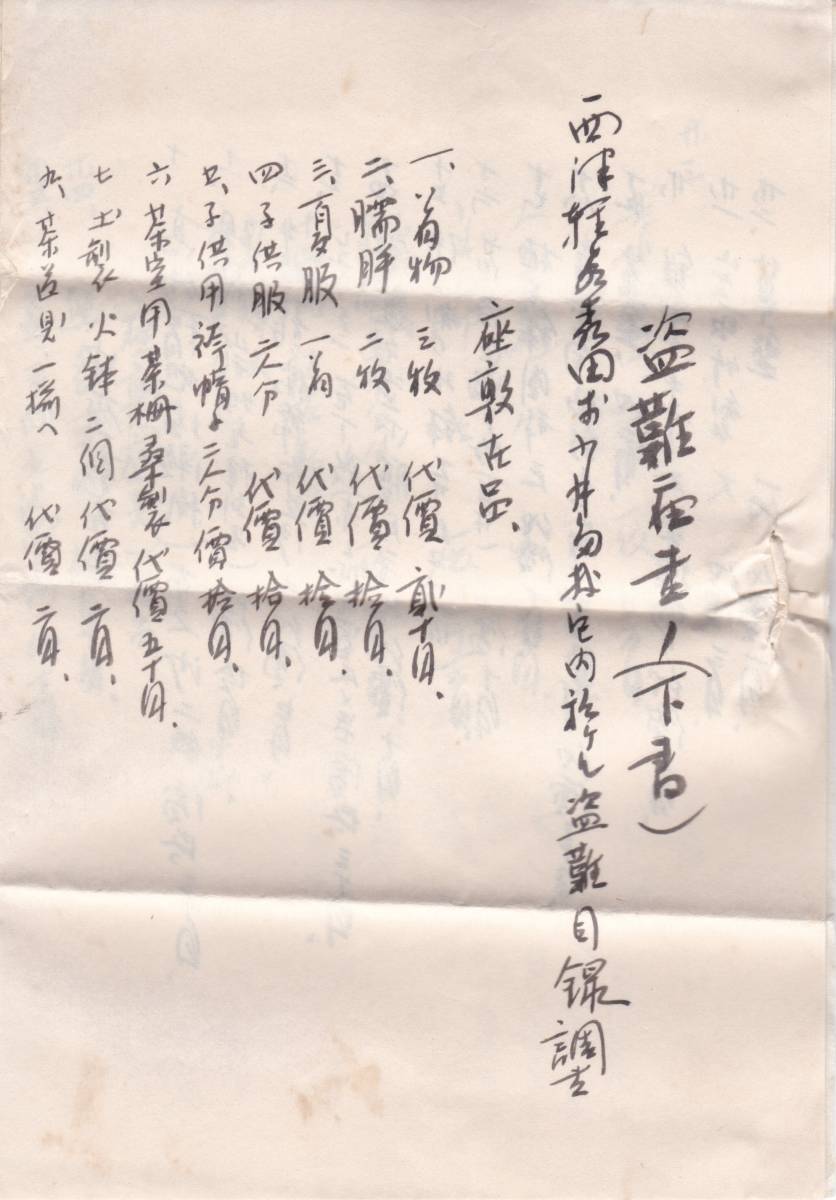 盗難届書ノ(下書)
西津軽郡森田村 内於ケル盗難目録調書
座敷在品、
一、着物 三枚 代價 貳十円、
二、襦袢 二枚 代價 拾円、
三、夏服 一着 代價 拾円、
四 子供服 二人分 代價 拾円、
五、子供用袴帽子 二人分 價 拾円、
六 茶室用茶棚 桑製 代價 五十円、
七 土製火鉢 二個 代價 二円、
九、茶道具 一揃へ 代價 二円、